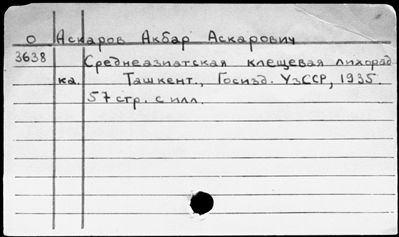 О Аскаров Акбар Аскарович
3638 Среднеазиатская клещевая лихорад
ка. Ташкент., Госизд. УзССР, 1935.
57 стр. с илл.